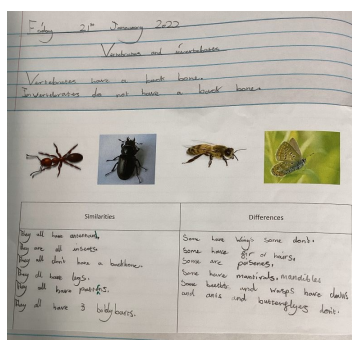 Friday 21st January 2022
Vertebrates and invertebrates
Vertebrates have a back bone.
Invertebrates do not have a back bone.
Similarities
They all have
They are all insects.
They all don't have a backbone.
They all have legs.
They all have
They all have 3 body parts.
Differences
Some have wings some dont.
Some have fur or hairs.
Some are
Some have mandibles
Some beetles and wasps have
and ants and butterflys dont.